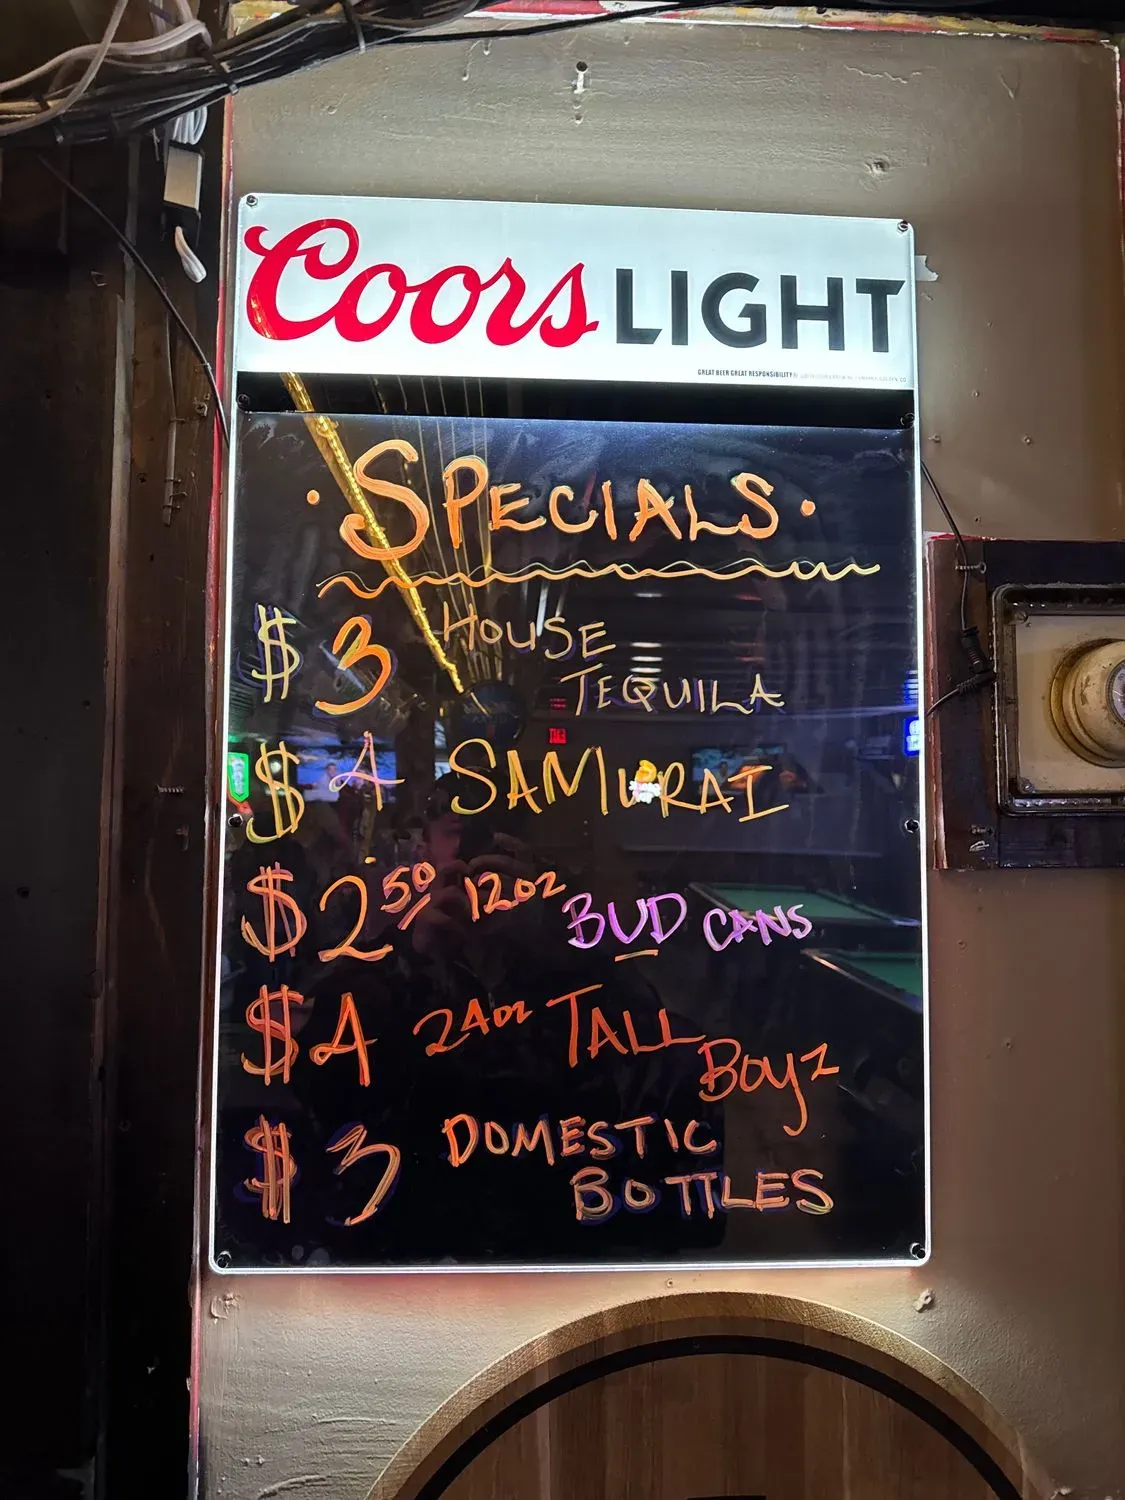 Coors LIGHT
GREAT BEER GREAT RESPONSIBILITY
• SPECIALS •
$3 HOUSE
TEQUILA
$4 SAMURAI
$2 50 12oz BUD CANS
$4 24oz TALL
BOYZ
$3 DOMESTIC
BOTTLES